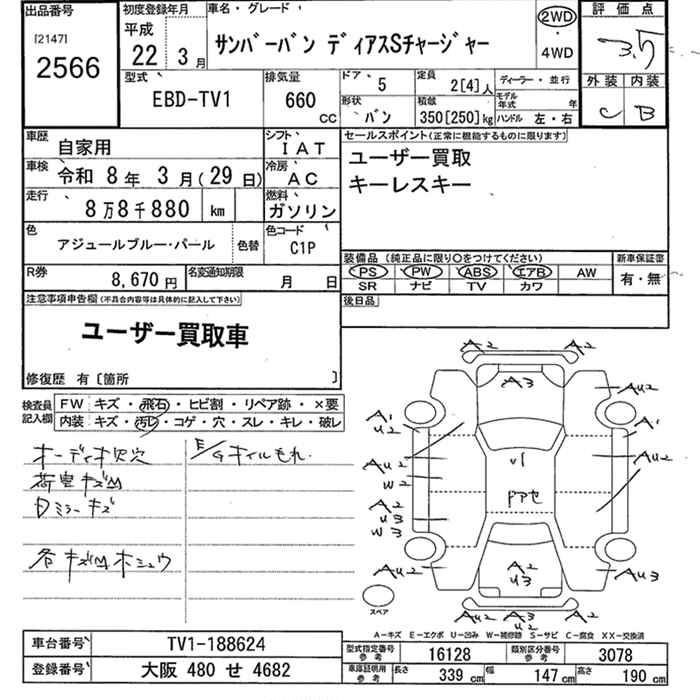 出品番号
[2147]
2566
初度登録年月
平成
22 年 3 月
車名・グレード
サンバーバン ディアスSチャージャー
2WD
・
4WD
評価点
3.5
外装 内装
C B
型式
EBD-TV1
排気量
660
cc
ドア 5
定員 2[4]人
ディーラー・並行
モデル年式 年
形状 バン
積載 350[250]kg
ハンドル 左・右
車歴 自家用
シフト IAT
車検 令和 8年 3月(29日)
冷房 AC
走行 8万8千880 km
燃料 ガソリン
色 アジュールブルー・パール 色替
色コード C1P
R券 8,670円
名変通知期限 月 日
セールスポイント(正常に機能するものに限ります)
ユーザー買取
キーレスキー
装備品 (純正品に限り○をつけてください)
新車保証書
PS PW ABS エアB AW
有・無
SR ナビ TV カワ
後日品
注意事項申告欄(不具合内容等は具体的に記入して下さい)
ユーザー買取車
修復歴 有〔箇所 〕
検査員記入欄
FW キズ・飛石・ヒビ割・リペア跡・×要
内装 キズ・汚レ・コゲ・穴・スレ・キレ・破レ
オーディオ欠穴
荷室キズM
E/Gオイルもれ.
各キズM
A2 A2
A3
AU2
A1
U2
A1
AU2
W2
AU2
A2
U3
W3
V1
ドアセ
AU2
A2
U3
AU3
AU2 A3 A2
U2
スペア
A-キズ E-エクボ U-凹み W-補修跡 S-サビ C-腐食 XX-交換済
車台番号 TV1-188624
登録番号 大阪 480 せ 4682
型式指定番号 参考 16128
類別区分番号 参考 3078
車庫証明用 参考 長さ 339 cm 幅 147 cm 高さ 190 cm